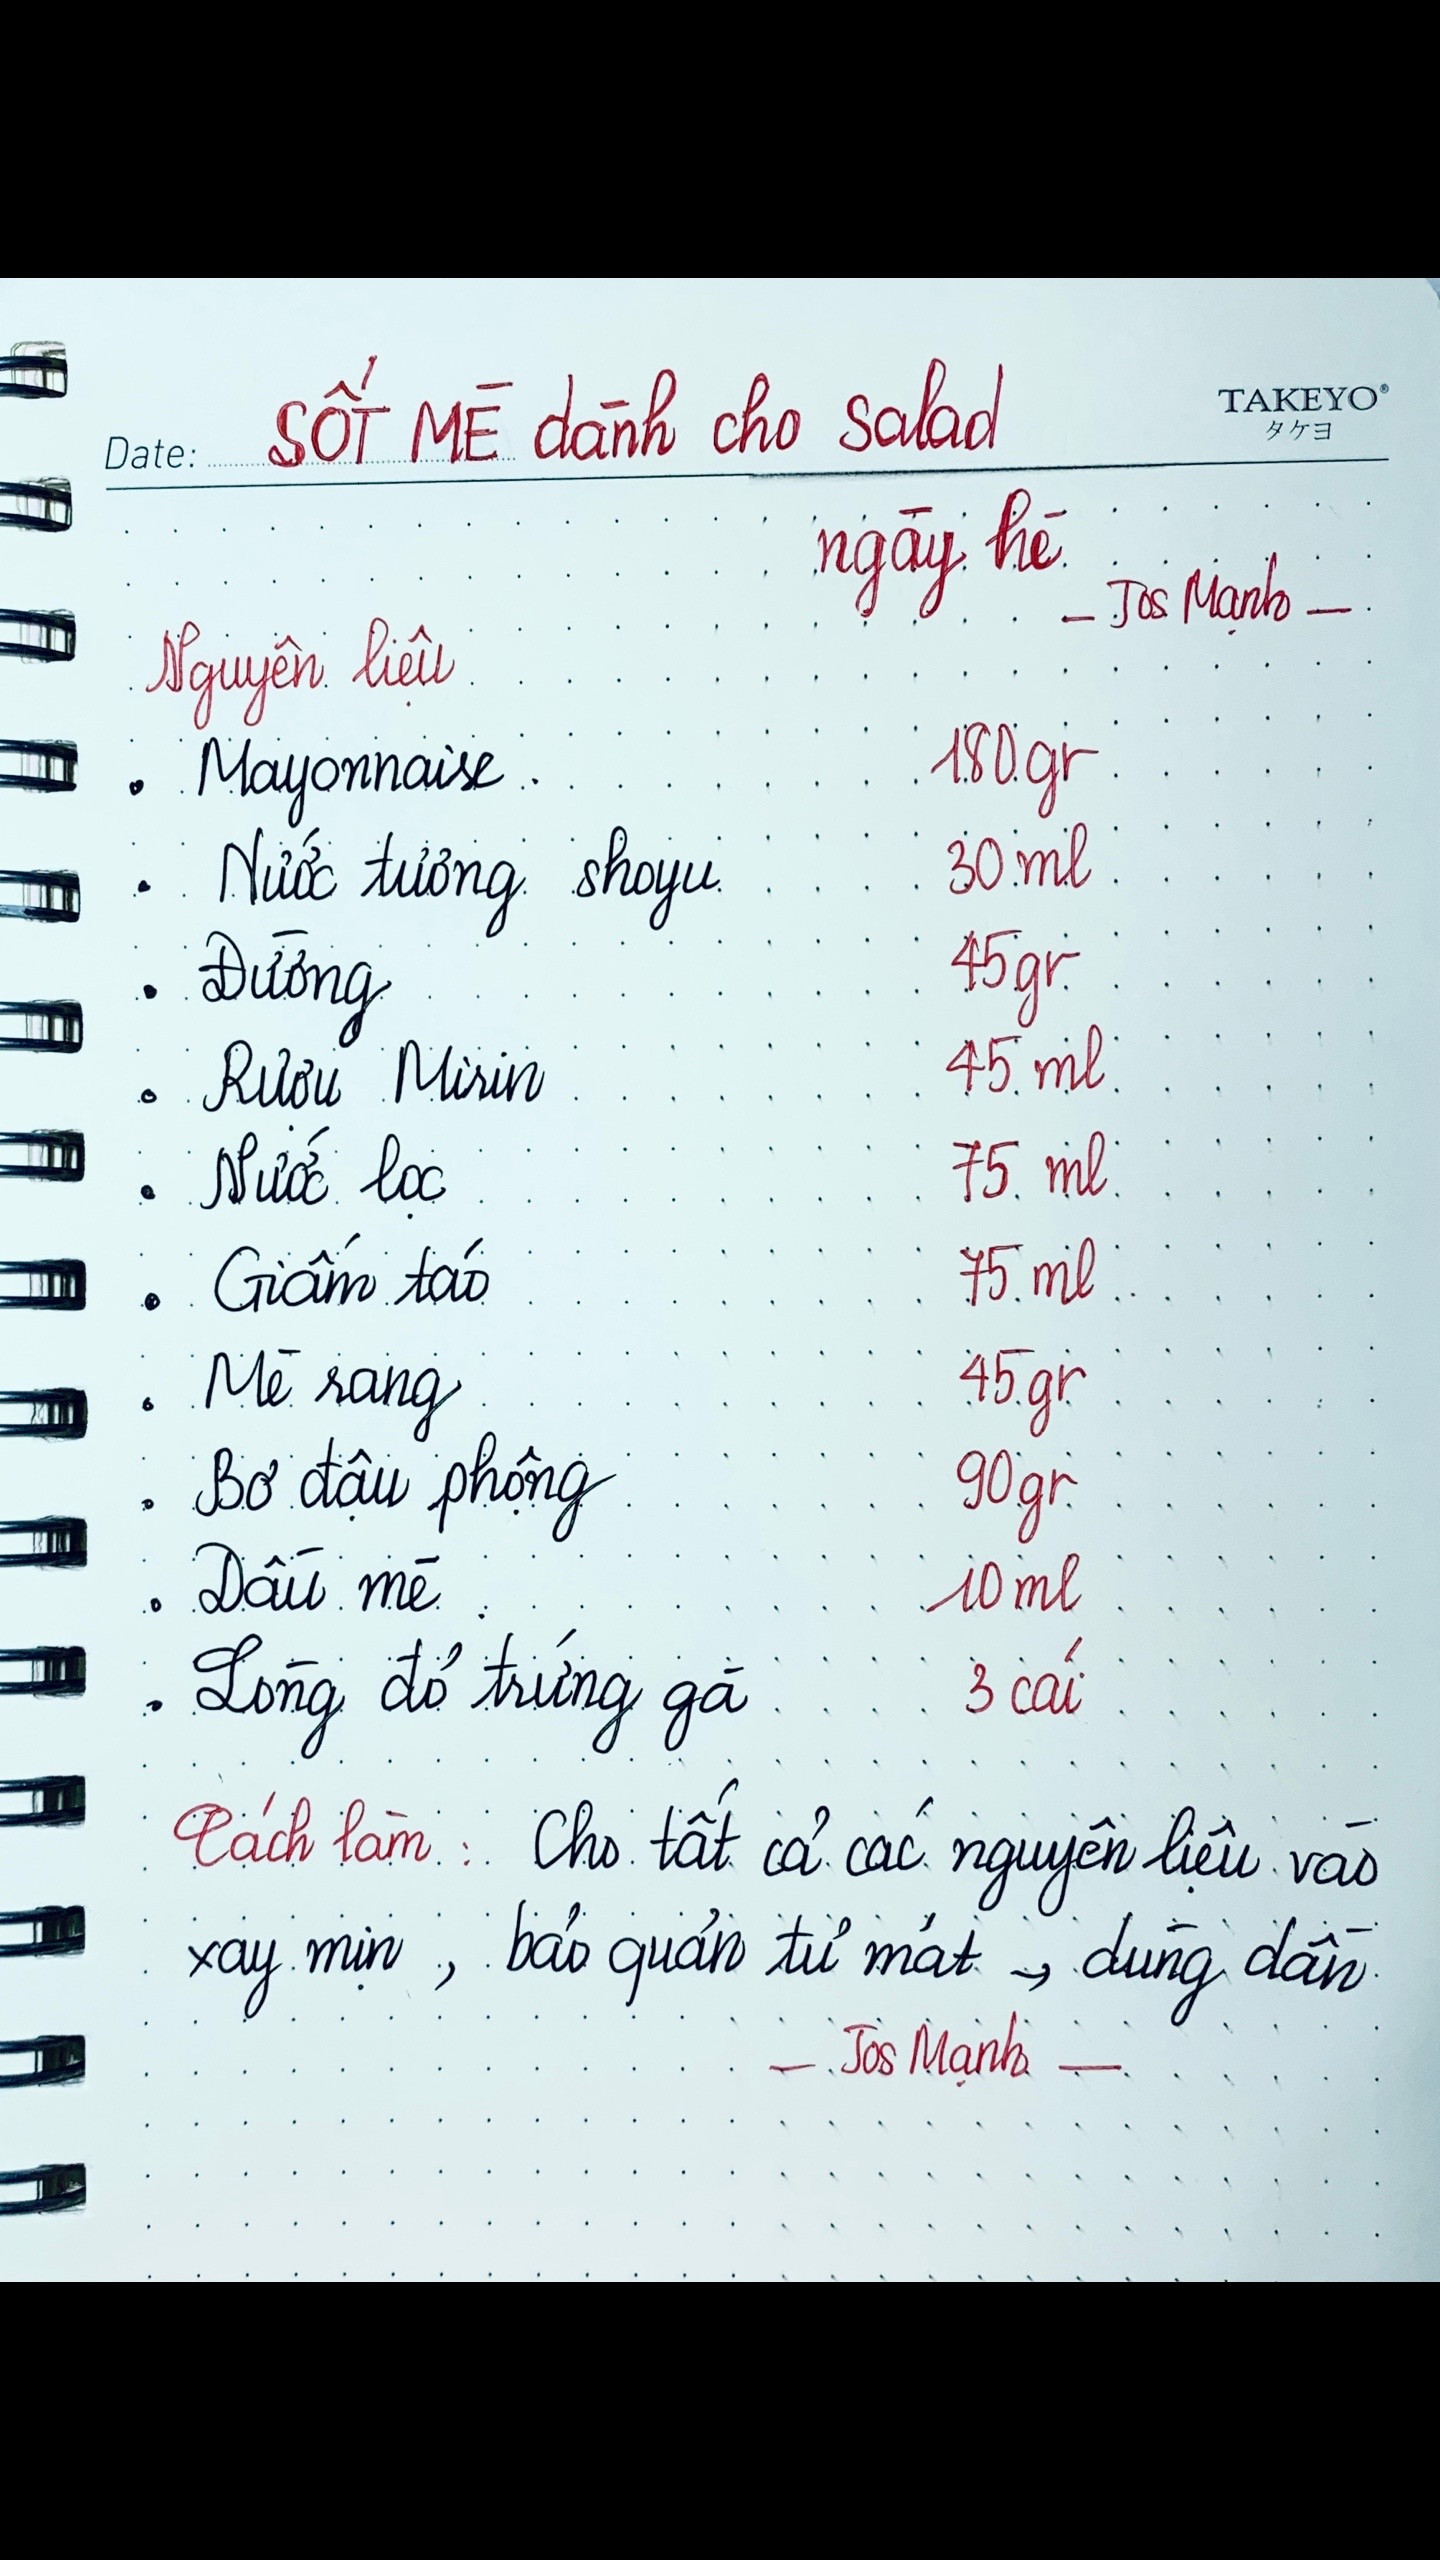 SỐT MÈ dành cho salad
TAKEYO®
タケヨ
Date:
ngày hè
- Jos Mạnh -
Nguyên liệu
• Mayonnaise 180gr
• Nước tương shoyu 30 ml
• Đường 45gr
• Rượu Mirin 45 ml
• Nước lọc 75 ml
• Giấm táo 75 ml
• Mè rang 45gr
• Bơ đậu phộng 90gr
• Dầu mè 10ml
• Lòng đỏ trứng gà 3 cái
Cách làm : Cho tất cả các nguyên liệu vào
xay mịn , bảo quản tủ mát → dùng dần
- Jos Mạnh -